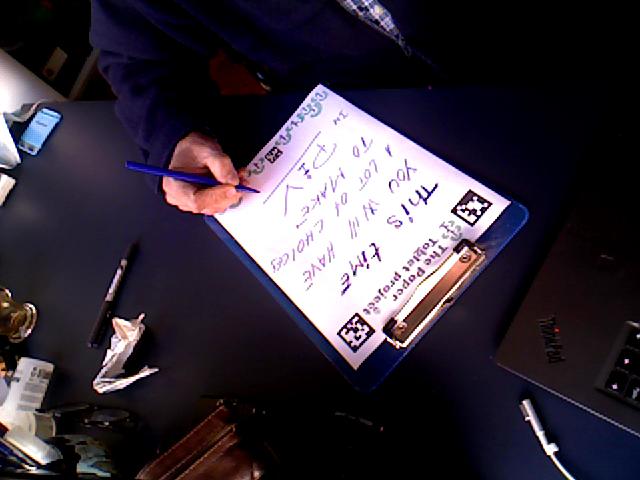 The Paper
Tablet project
This time
You will have
a lot of choices
to make
in DIV
ThinkPad